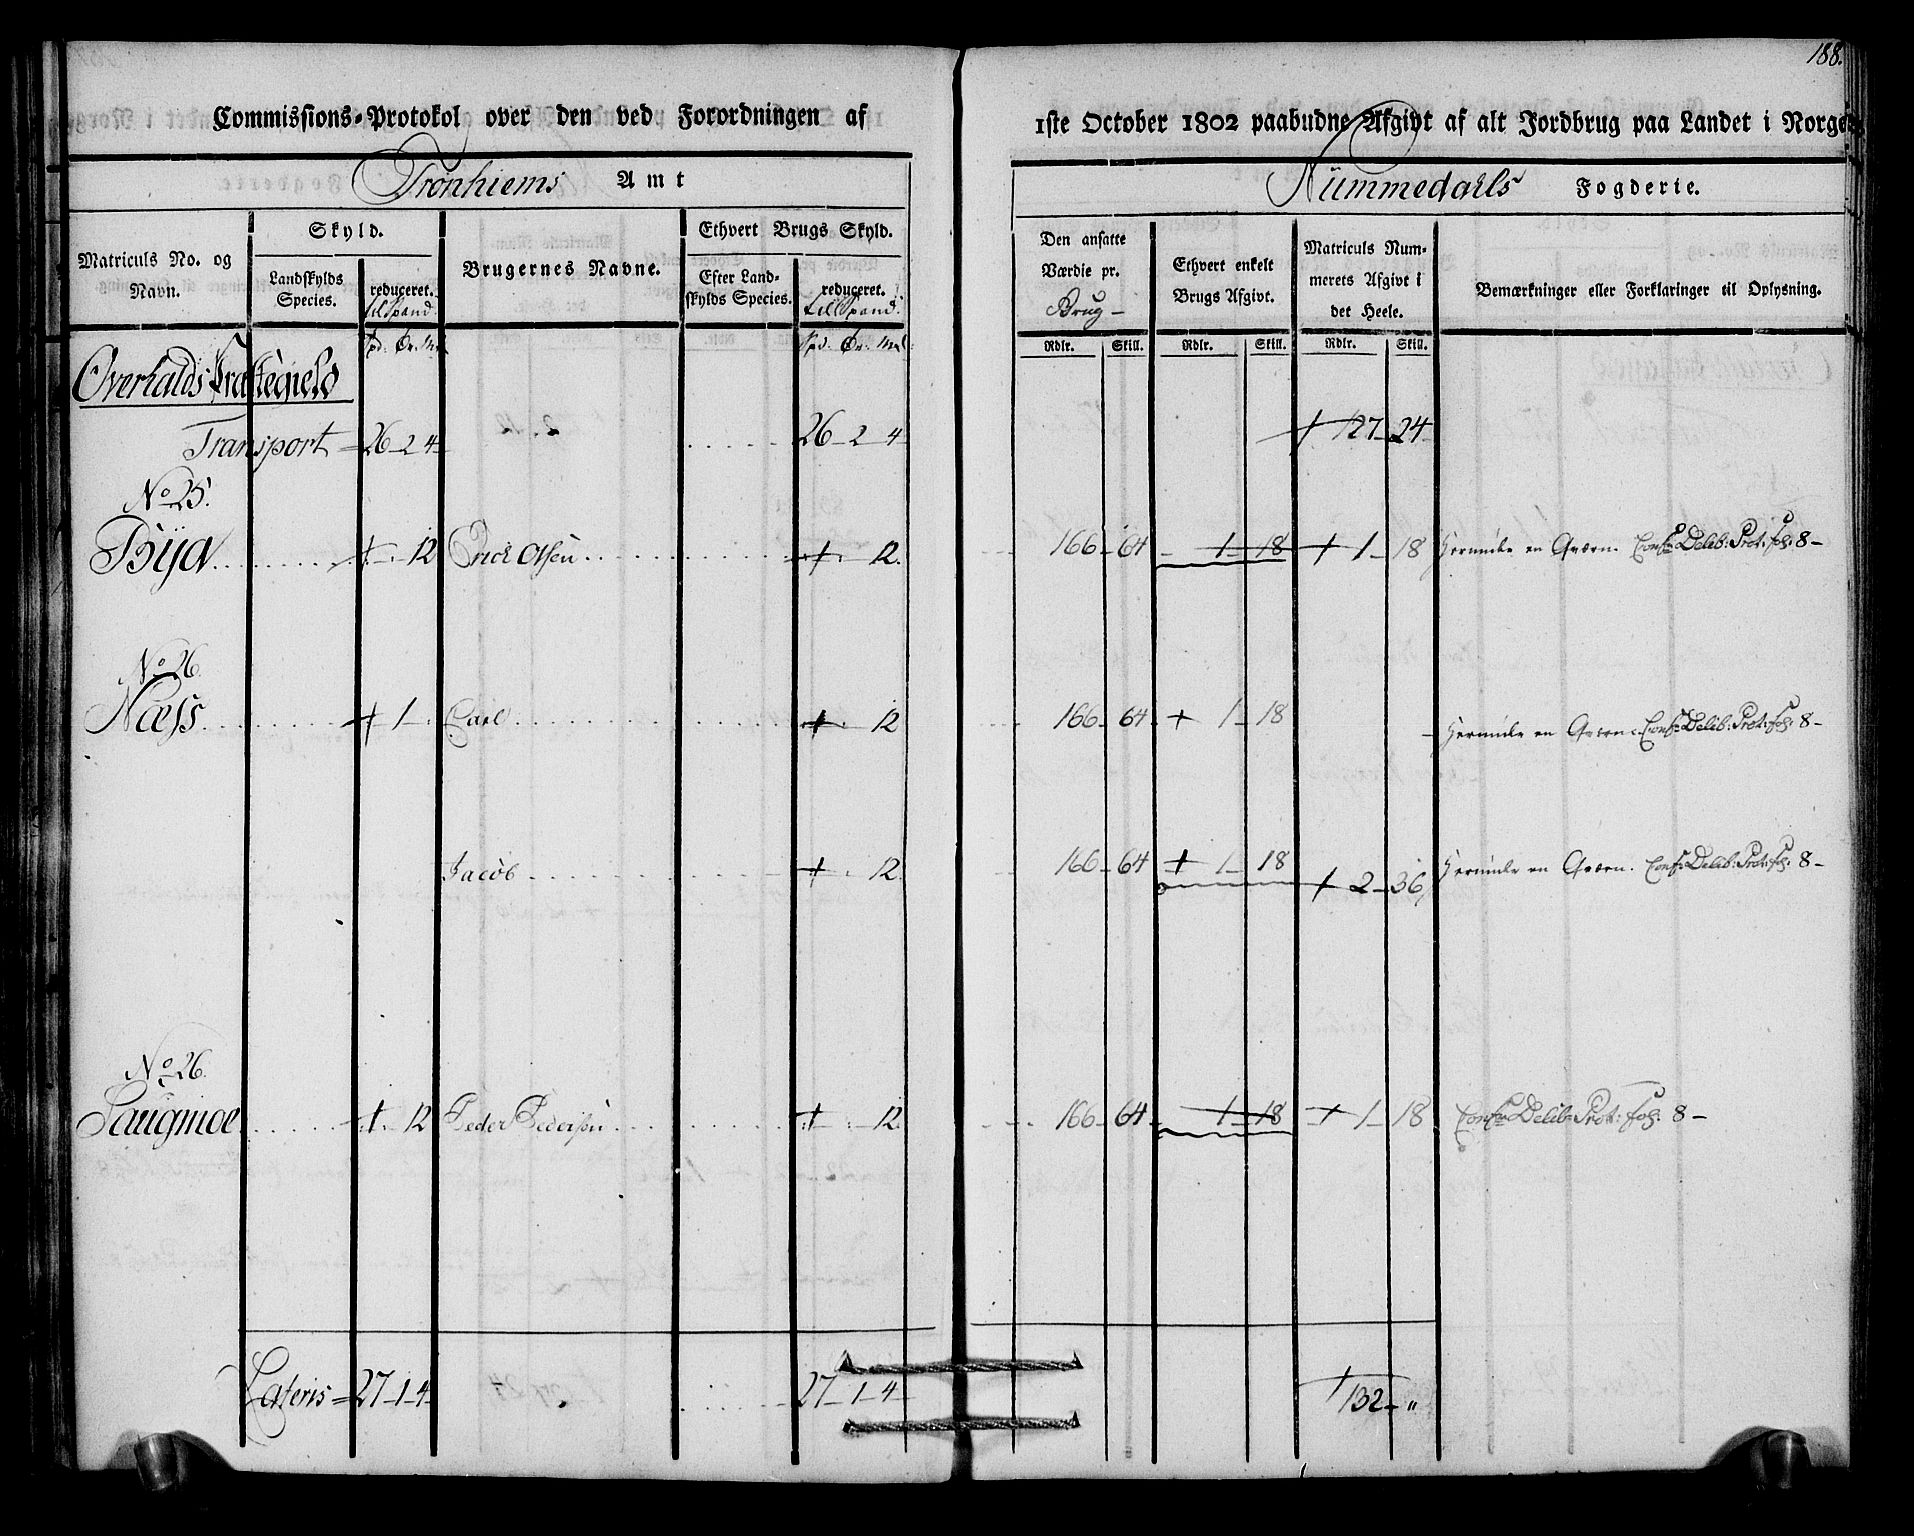 188.
Commissions-Protokol over den ved Forordningen af 1ste October 1802 paabudne Afgivt af alt Jordbrug paa Landet i Norge
Tronhiems Amt Nummedahls Fogderie.
Matriculs No. og Navn. Skyld. Brugernes Navne. Ethvert Brugs Skyld. Den ansatte Værdie pr. Brug Ethvert enkelt Brugs Afgivt. Matriculs Nummerets Afgivt i det Heele. Bemærkninger eller Forklaringer til Oplysning.
Landskylds Species. reduceret. til Spand. Efter Landskylds Species. reduceret. till Spand.
Spd. Ør. Mel Spd. Ør. Mel Rdlr. Skill. Rdlr. Skill. Rdlr. Skill.
Overhalds Præstegield
Transport = 26 - 2 4 26 - 2 4 127 - 24
No 25.
Bya 12 Erick Olsen 12. 166 - 64 1 - 18 1 - 18 en Qværn. Conf: Delib: Prot: fol: 8 -
No 26
Næss 1 Carl 12 166 - 64 1 - 18 en Qværn. Conf: Delib: Prot: fol: 8 -
Jacob 12. 166 - 64 1 - 18 2 - 36 en Qværn. Conf: Delib: Prot: fol: 8 -
No 26.
Saugmoe 12 Peder Pedersen 12. 166 - 64 1 - 18 1 - 18 Conf: Delib: Prot: fol: 8 -
Lateris = 27 - 1 - 4 27 - 1 - 4 132 - "